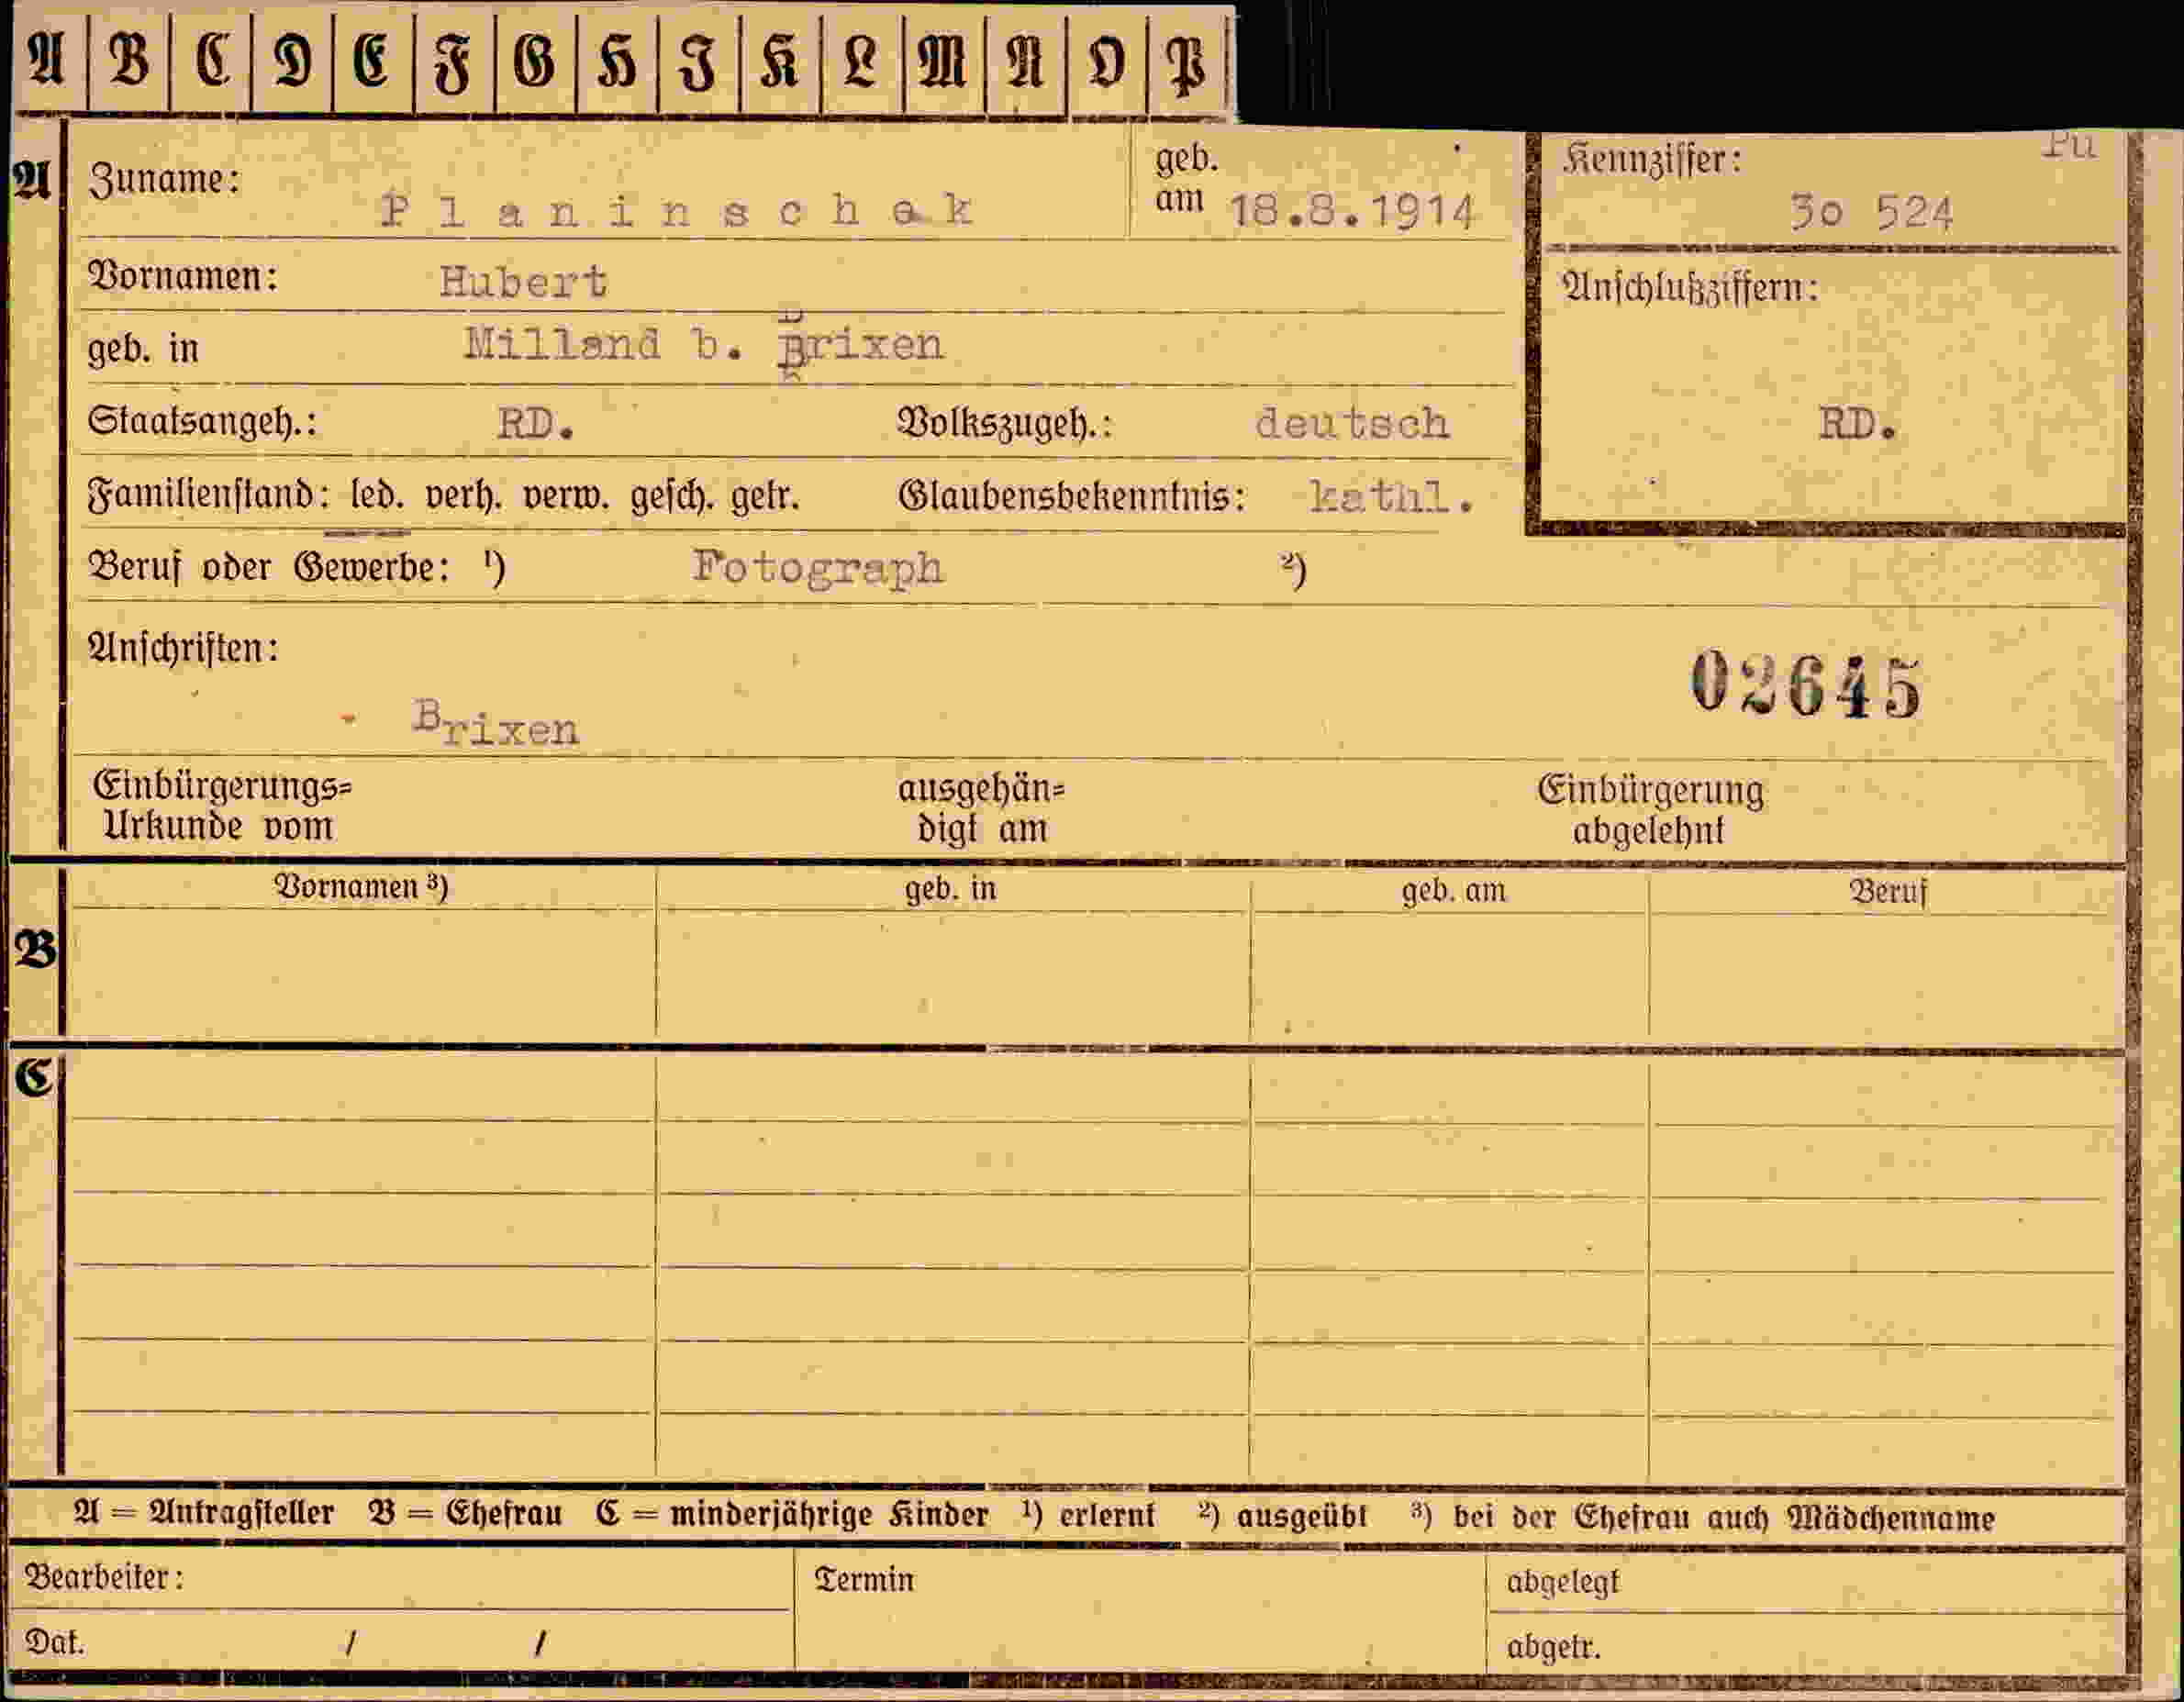 A B C D E F G H I K L M N O P
A Zuname: Planinschek geb. am 18.8.1914 Kennziffer: Pu
30 524
Vornamen: Hubert Anschlußziffern:
geb. in Milland b. Brixen
Staatsangeh.: RD. Volkszugeh.: deutsch RD.
Familienstand: led. verh. verw. gesch. getr. Glaubensbekenntnis: kathl.
Beruf oder Gewerbe: ¹) Fotograph ²)
Anschriften:
02645
Brixen
Einbürgerungs= ausgehän= Einbürgerung
Urkunde vom digt am abgelehnt
Vornamen ³) geb. in geb. am Beruf
B
C
A = Antragsteller B = Ehefrau C = minderjährige Kinder ¹) erlernt ²) ausgeübt ³) bei der Ehefrau auch Mädchenname
Bearbeiter: Termin abgelegt
Dat. / / abgetr.